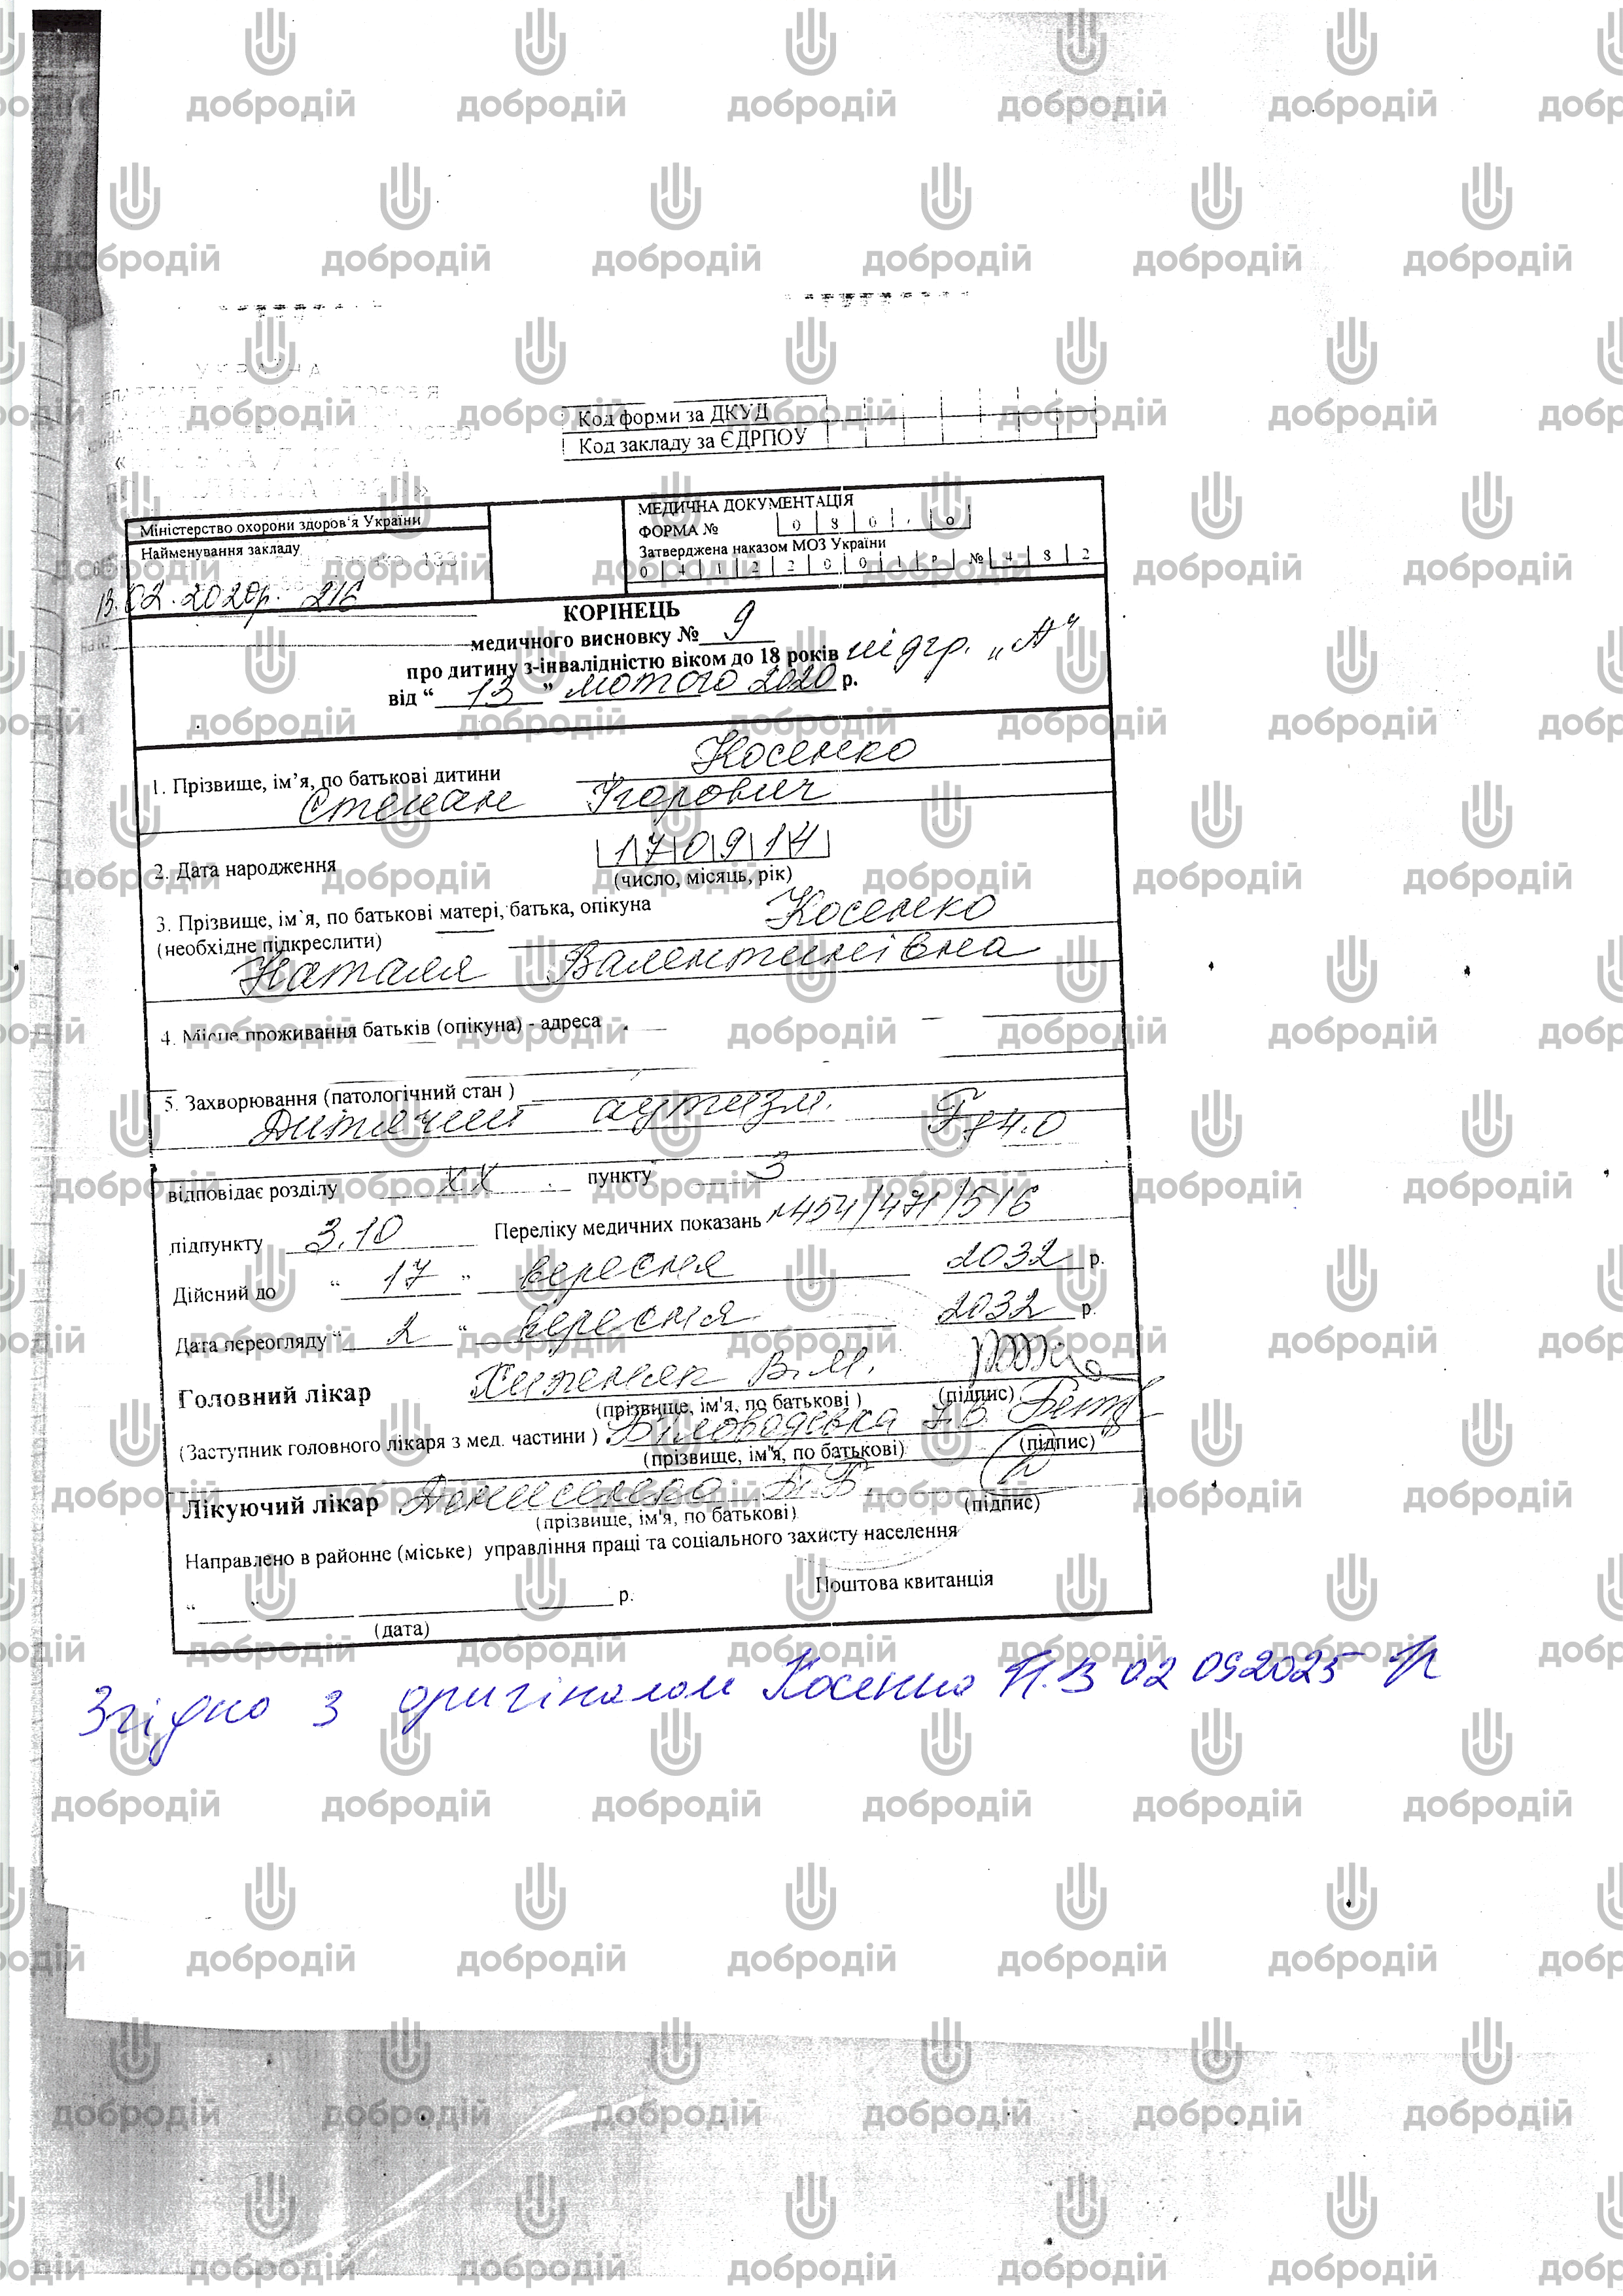 УКРАЇНА
Код форми за ДКУД
Код закладу за ЄДРПОУ
Міністерство охорони здоров'я України
Найменування закладу
13.02.2020р. 216
МЕДИЧНА ДОКУМЕНТАЦІЯ
ФОРМА № 0 8 0 . 0
Затверджена наказом МОЗ України
0 4 1 2 2 0 0 1 р № 4 8 2
КОРІНЕЦЬ
медичного висновку № 9
про дитину з-інвалідністю віком до 18 років підгр. „А"
від “ 13 ” лютого 2020 р.
1. Прізвище, ім’я, по батькові дитини Косенко
Степан Ігорович
2. Дата народження 17 09 14
(число, місяць, рік)
3. Прізвище, ім`я, по батькові матері, батька, опікуна Косенко
(необхідне підкреслити)
Наталя Валентинівна
4. Місце проживання батьків (опікуна) - адреса
5. Захворювання (патологічний стан )
Дитячий аутизм. F84.0
відповідає розділу XX пункту 3
підпункту 3.10 Переліку медичних показань №454/471/516
Дійсний до “ 17 ” вересня 2032 р.
Дата переогляду “ 2 “ вересня 2032 р.
Головний лікар В.М.
(прізвище, ім'я, по батькові ) (підпис)
(Заступник головного лікаря з мед. частини ) Біловодська
(прізвище, ім'я, по батькові) (підпис)
Лікуючий лікар Денисенко
(прізвище, ім'я, по батькові) (підпис)
Направлено в районне (міське) управління праці та соціального захисту населення
“ ” р. Поштова квитанція
(дата)
Згідно з оригіналом Косенко Н.В 02 09 2025
добродій